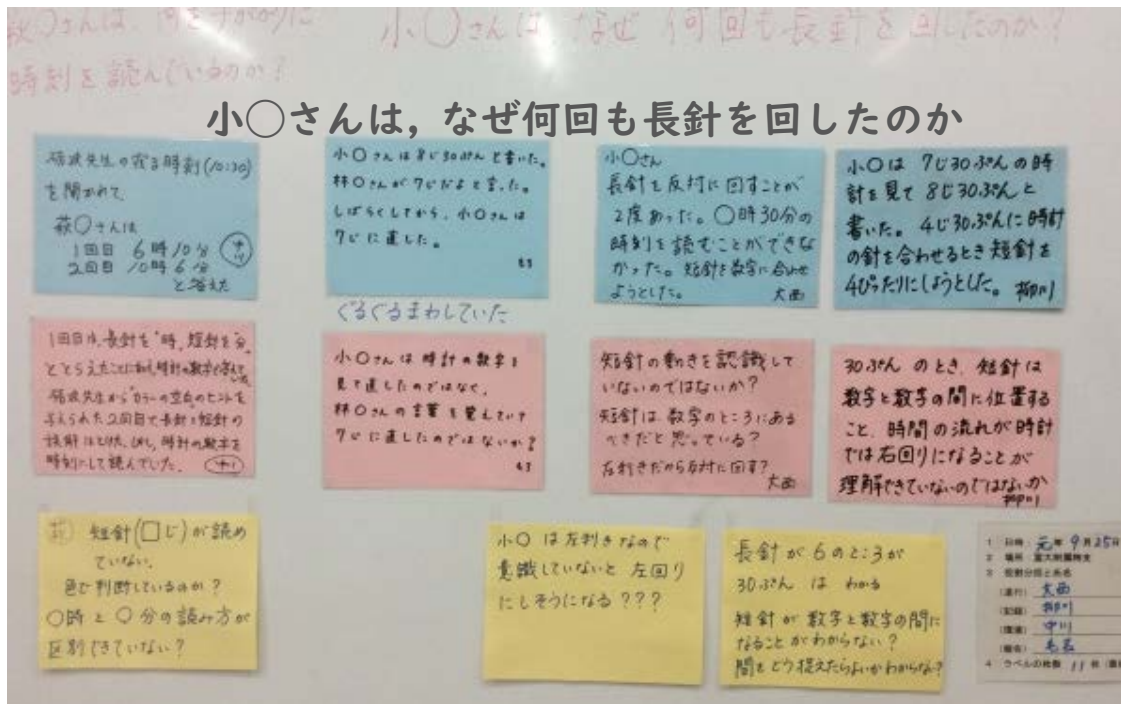 萩○さんは、何を手がかりに
時刻を読んでいるのか?
小○さんは、なぜ何回も長針を回したのか?
小○さんは，なぜ何回も長針を回したのか
砺波先生の寝る時刻(10:30)
を聞かれて、
萩○さんは
1回目 6時10分
2回目 10時6分
と答えた
小○さんは8じ30ぷんと書いた。
林○さんが7じだよと言った。
しばらくしてから、小○さんは
7じに直した。
小○さん
長針を反対に回すことが
2度あった。○時30分の
時刻を読むことができな
かった。短針を数字に合わせ
ようとした。 大西
小○は 7じ30ぷんの時
計を見て 8じ30ぷんと
書いた。4じ30ぷんに時計
の針を合わせるとき短針を
4ぴったりにしようとした。 柳川
ぐるぐるまわしていた
1回目は、長針を"時"、短針を"分"
ととらえたことに加え、時計の数字で答えて
砺波先生から"カラーの空白のヒントを
与えられた2回目で長針と短針の
誤解はとけた。しかし、時計の数字を
時刻にして読んでいた。
小○さんは 時計の数字を
見て直したのではなく、
林○さんの言葉を覚えていて
7じに直したのではないか?
短針の動きを認識して
いないのではないか?
短針は、数字のところにある
べきだと思っている?
左利きだから反対に回す?
大西
30ぷん のとき、短針は
数字と数字の間に位置する
こと、時間の流れが時計
では右回りになることが
理解できていないのではないか
柳川
短針(□じ)が読め
ていない。
色で判断しているのか?
○時と○分の読み方が
区別できていない?
小○は左利きなので
意識していないと 左回り
にしそうになる???
長針が6のところが
30ぷん は わかる
短針が数字と数字の間に
なることがわからない?
間をどう捉えたらよいかわからない?
1 日時 元年9月25日
2 場所 富大附属特支
3 役割分担と氏名
(進行) 大西
(記録) 柳川
中川
4 ラベルの枚数 11枚